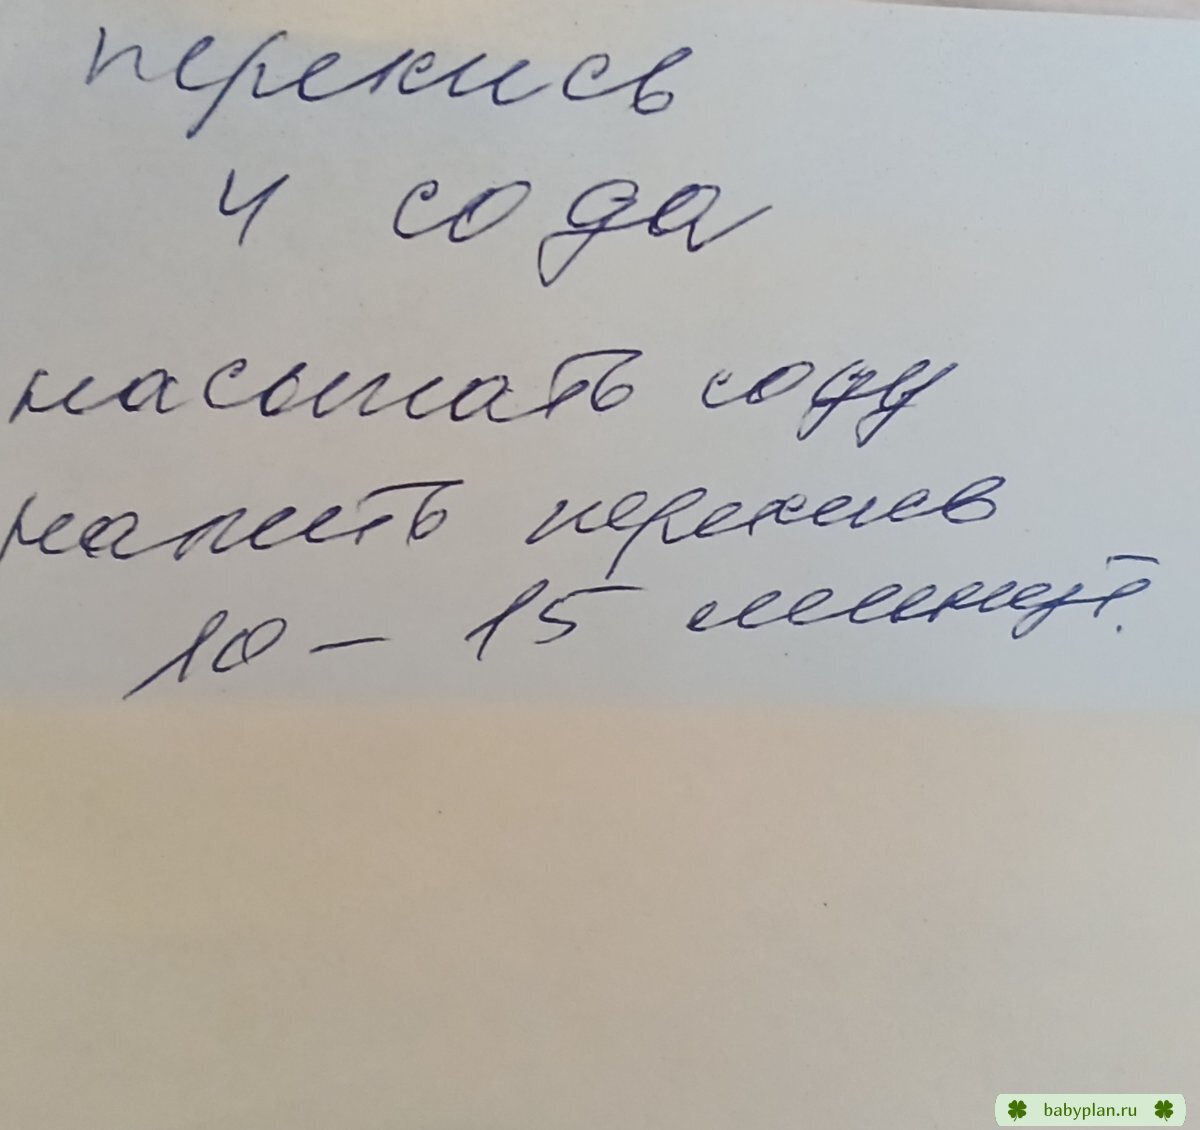 перекись
и сода
насыпать соду
налить перекись
10 - 15 минут.
babyplan.ru